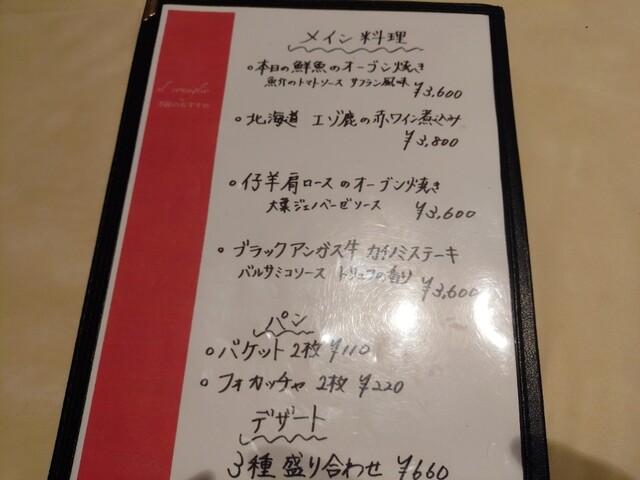 メイン料理
○本日の鮮魚のオーブン焼き
魚介のトマトソース サフラン風味
¥3,600
○北海道 エゾ鹿の赤ワイン煮込み
¥3,800
○仔羊肩ロースのオーブン焼き
大葉ジェノベーゼソース
¥3,600
○ブラックアンガス牛 カイノミステーキ
バルサミコソース トリュフの香り
¥3,600
パン
○バケット 2枚 ¥110
○フォカッチャ 2枚 ¥220
デザート
3種盛り合わせ ¥660